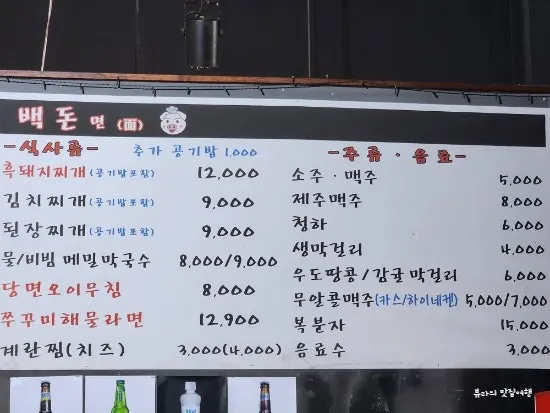 백돈면 (面)
-식사류-
추가 공기밥 1.000
흑돼지찌개 (공기밥포함) 12,000
김치찌개 (공기밥포함) 9,000
된장찌개 (공기밥포함) 9,000
물/비빔 메밀막국수 8,000/9,000
당면오이무침 8,000
쭈꾸미해물라면 12,900
계란찜(치즈) 3,000(4,000)
-주류·음료-
소주·맥주 5,000
제주맥주 8,000
청하 6,000
생막걸리 4,000
우도땅콩/감귤막걸리 6,000
무알콜맥주(카스/하이네켄) 5,000/7,000
복분자 15,000
음료수 3,000
뷰라의 맛집여행